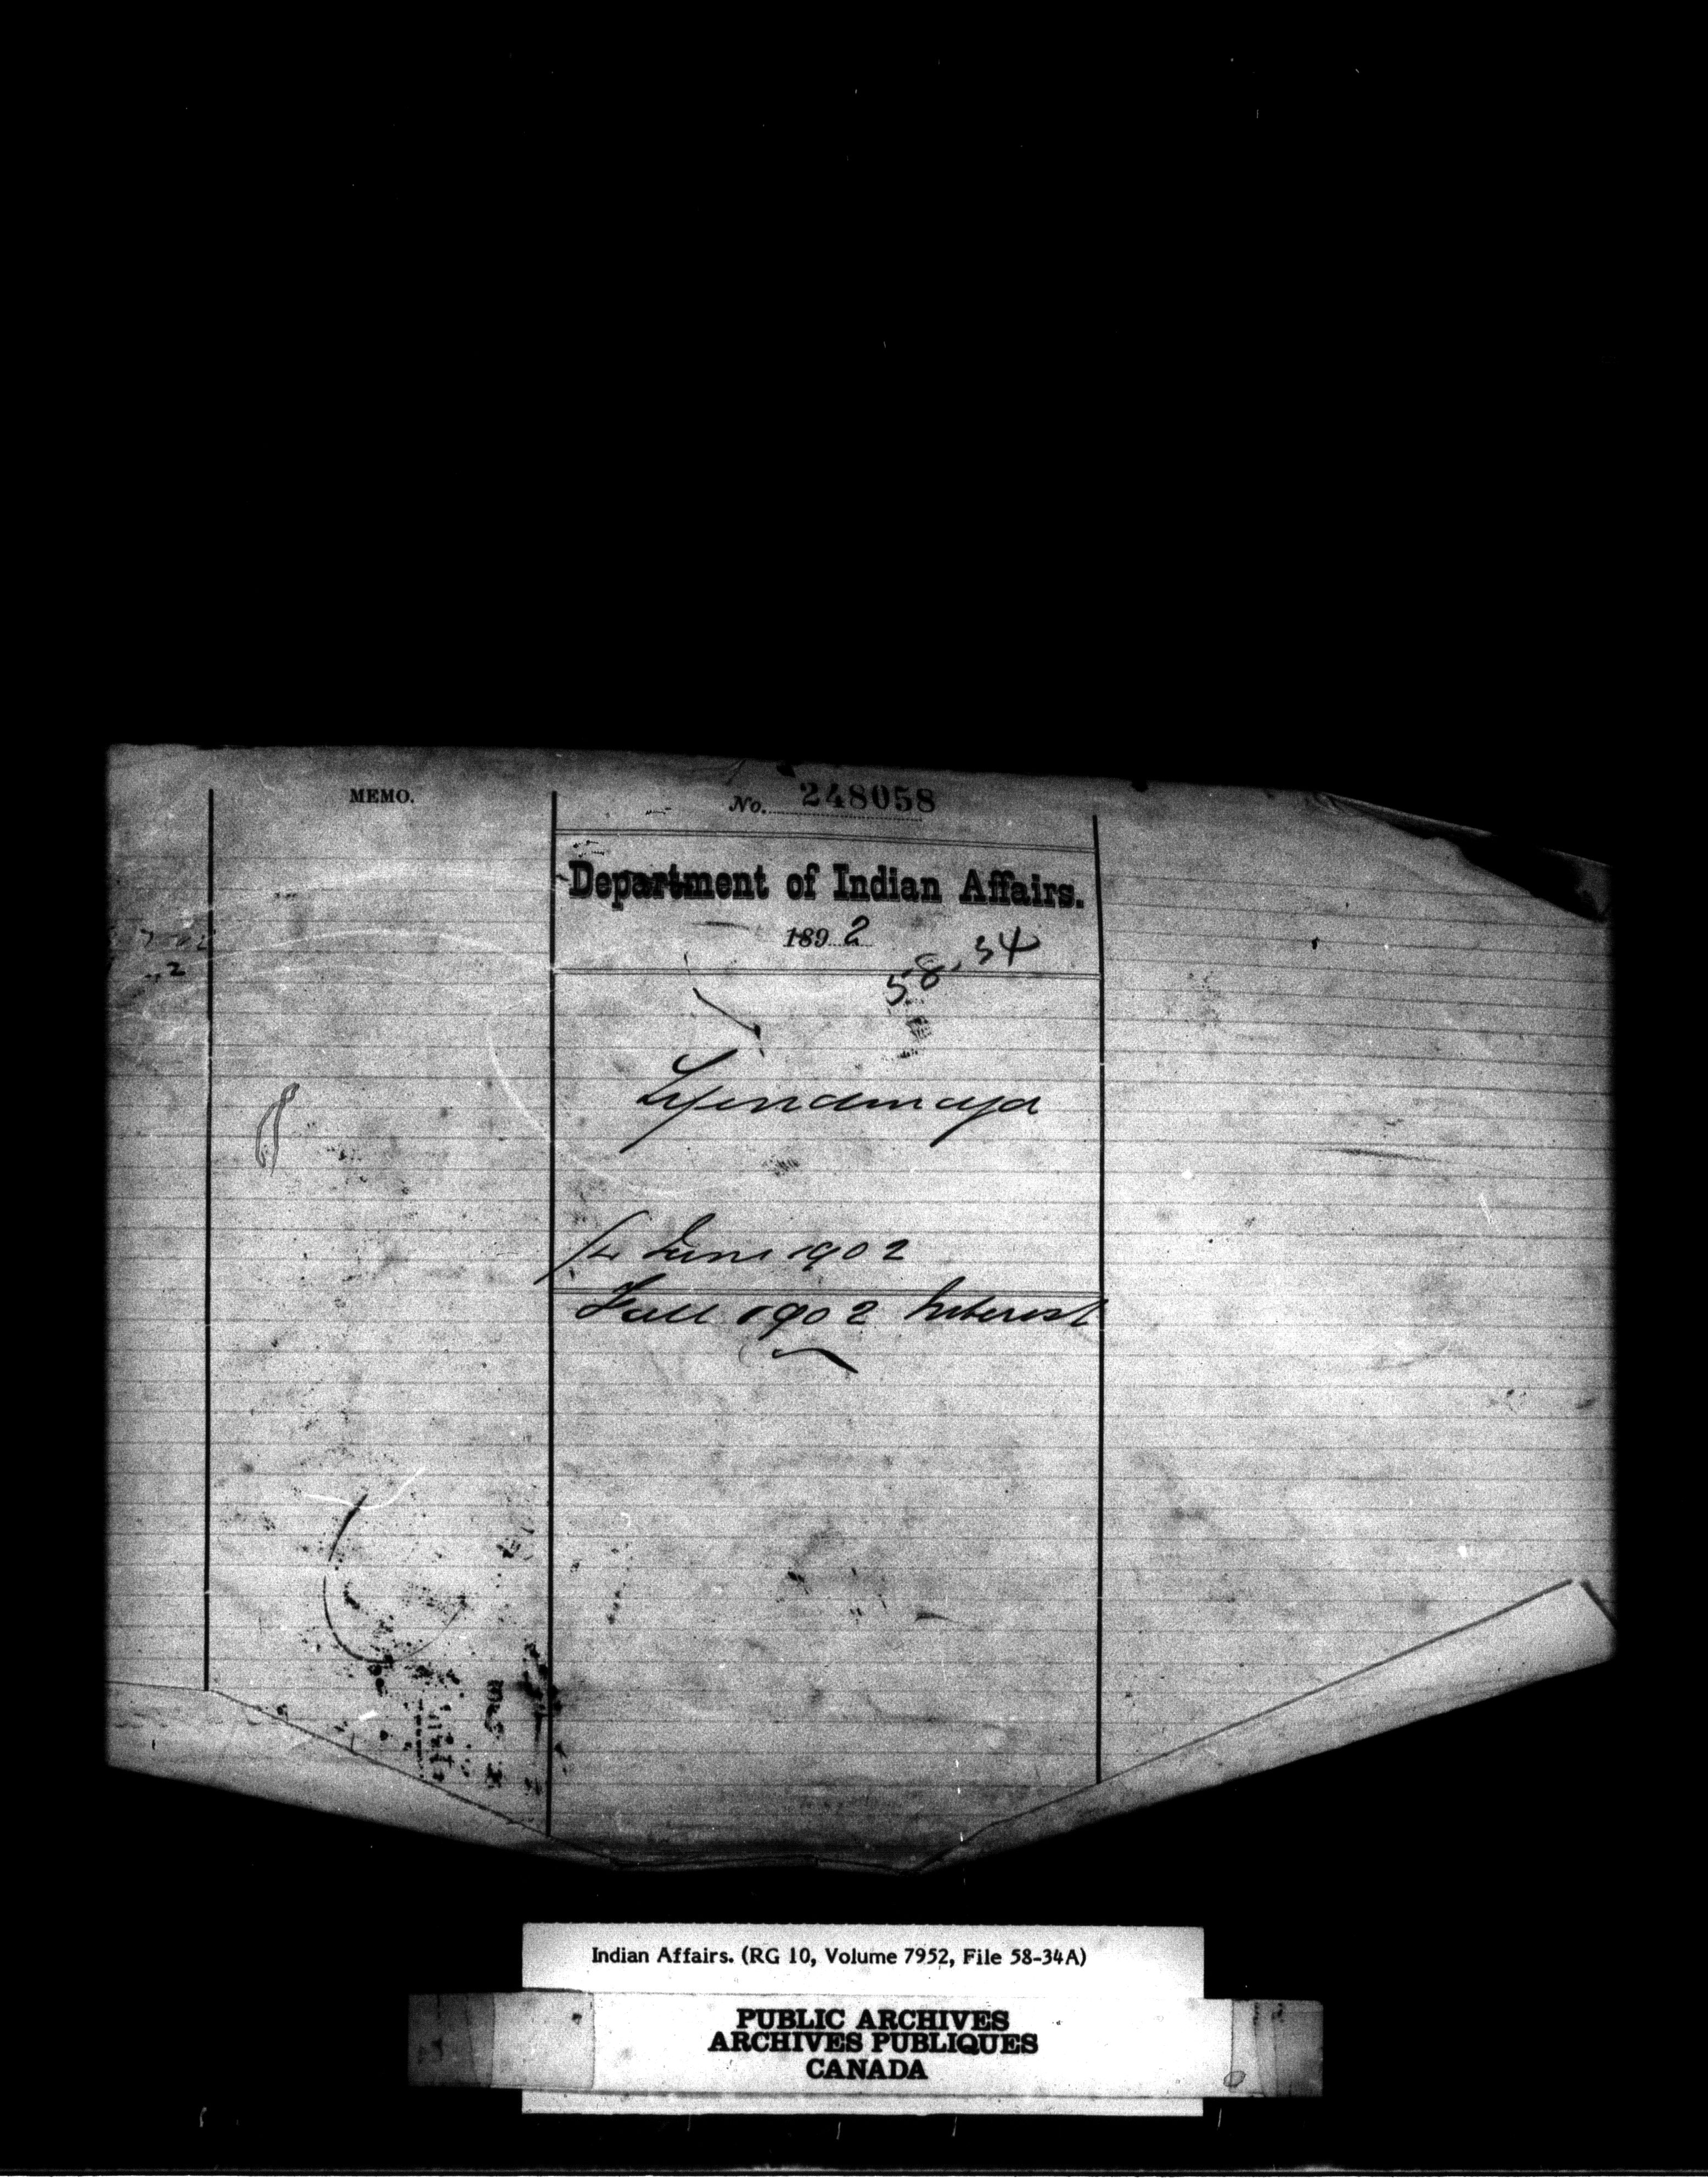 MEMO.
No. 248058
Department of Indian Affairs.
189 2
58.34
Tyendinaga
June 1902
Fall 1902 Interest
Indian Affairs. (RG 10, Volume 7952, File 58-34A)
PUBLIC ARCHIVES
ARCHIVES PUBLIQUES
CANADA